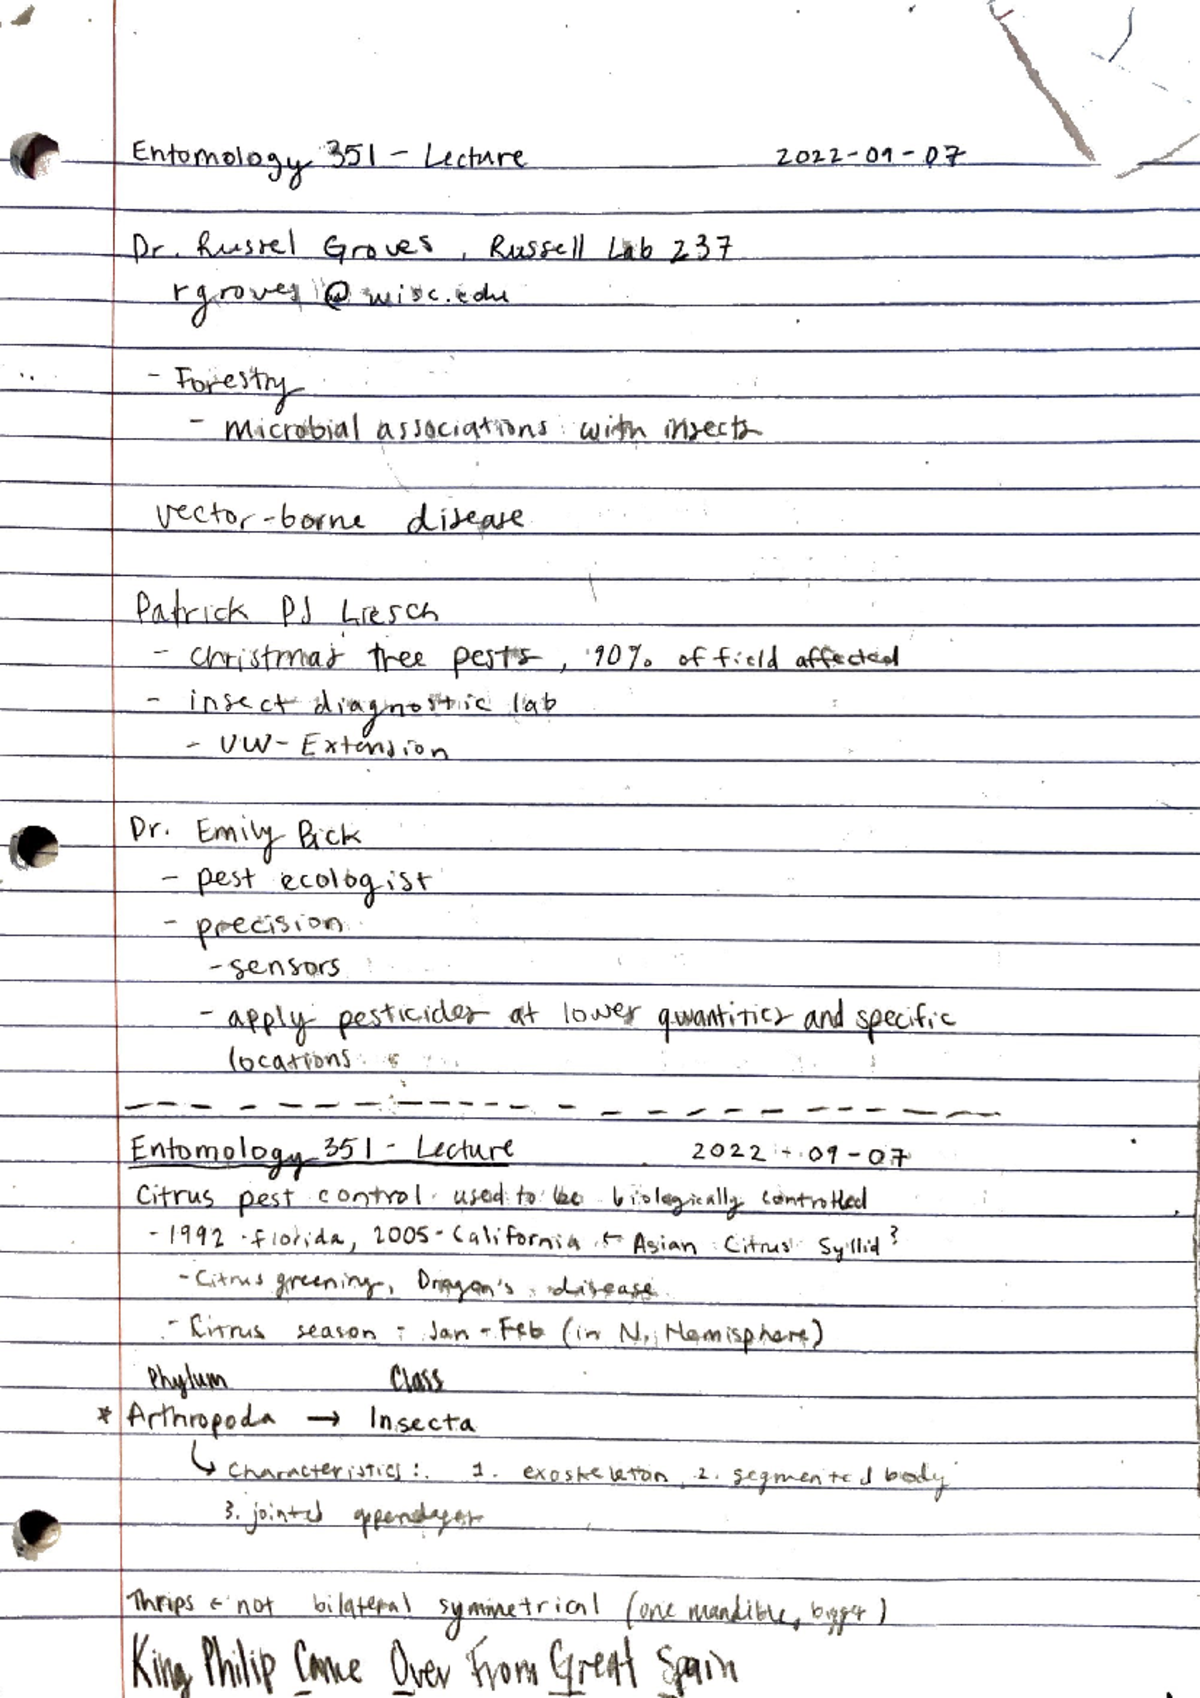 Entomology 351 - Lecture 2022-09-07
Dr. Russel Groves, Russell Lab 237
rgroves @ wisc.edu
- Forestry
- microbial associations with insects
vector-borne disease
Patrick PJ Liesch
- christmas tree pests, 90% of field affected
- insect diagnostic lab
- UW-Extension
Dr. Emily Bick
- pest ecologist
- precision
- sensors
- apply pesticides at lower quantities and specific
locations
Entomology 351 - Lecture 2022-09-07
Citrus pest control used to be biologically controlled
- 1992 - florida, 2005 - California ← Asian Citrus Syllid ?
- Citrus greening, Dragon's disease
- Citrus season - Jan - Feb (in N. Hemisphere)
Phylum Class
* Arthropoda → Insecta
↳ characteristics: 1. exoskeleton, 2. segmented body
3. jointed appendages
Thrips ← not bilateral symmetrical (one mandible, bigger)
King Philip Came Over From Great Spain